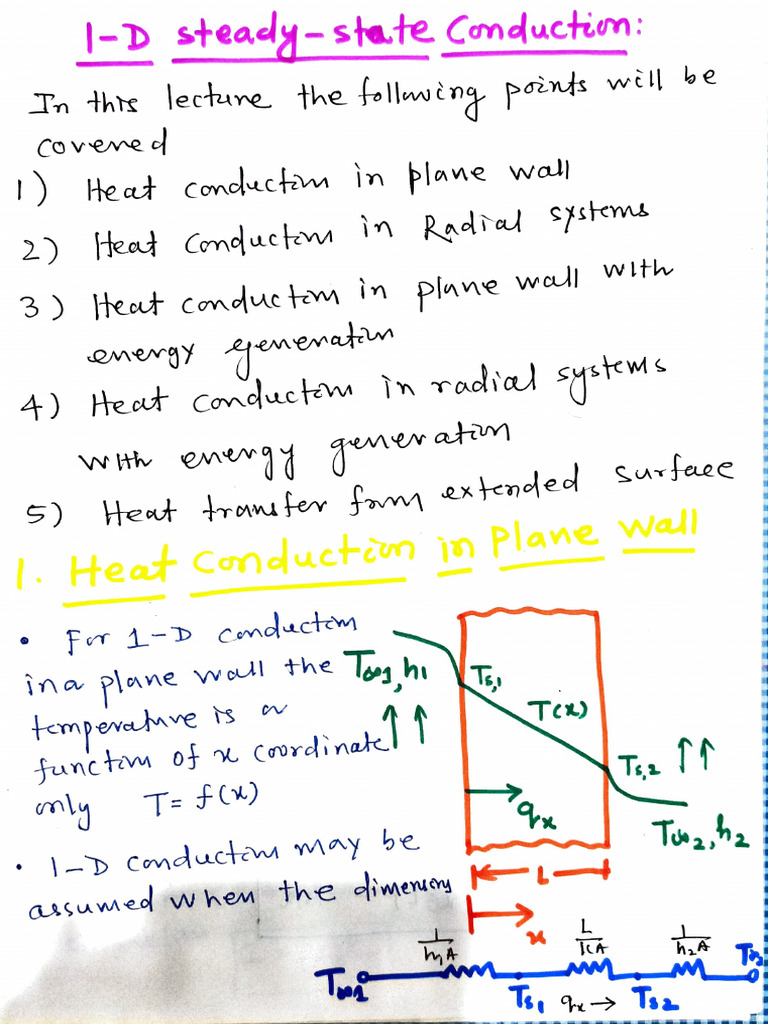 1-D steady-state Conduction:
In this lecture the following points will be
covered
1) Heat conduction in plane wall
2) Heat Conduction in Radial systems
3) Heat conduction in plane wall with
energy generation
4) Heat conduction in radial systems
with energy generation
5) Heat transfer from extended surface
1. Heat Conduction in Plane Wall
• For 1-D conduction
in a plane wall the
temperature is a
function of x coordinate
only T = f(x)
• 1-D conduction may be
assumed when the dimensions
T∞1, h1
Ts,1
T(x)
Ts,2
qx
T∞2, h2
L
x
1/h1A
L/KA
1/h2A
T∞1
Ts1
qx →
Ts2
T∞2